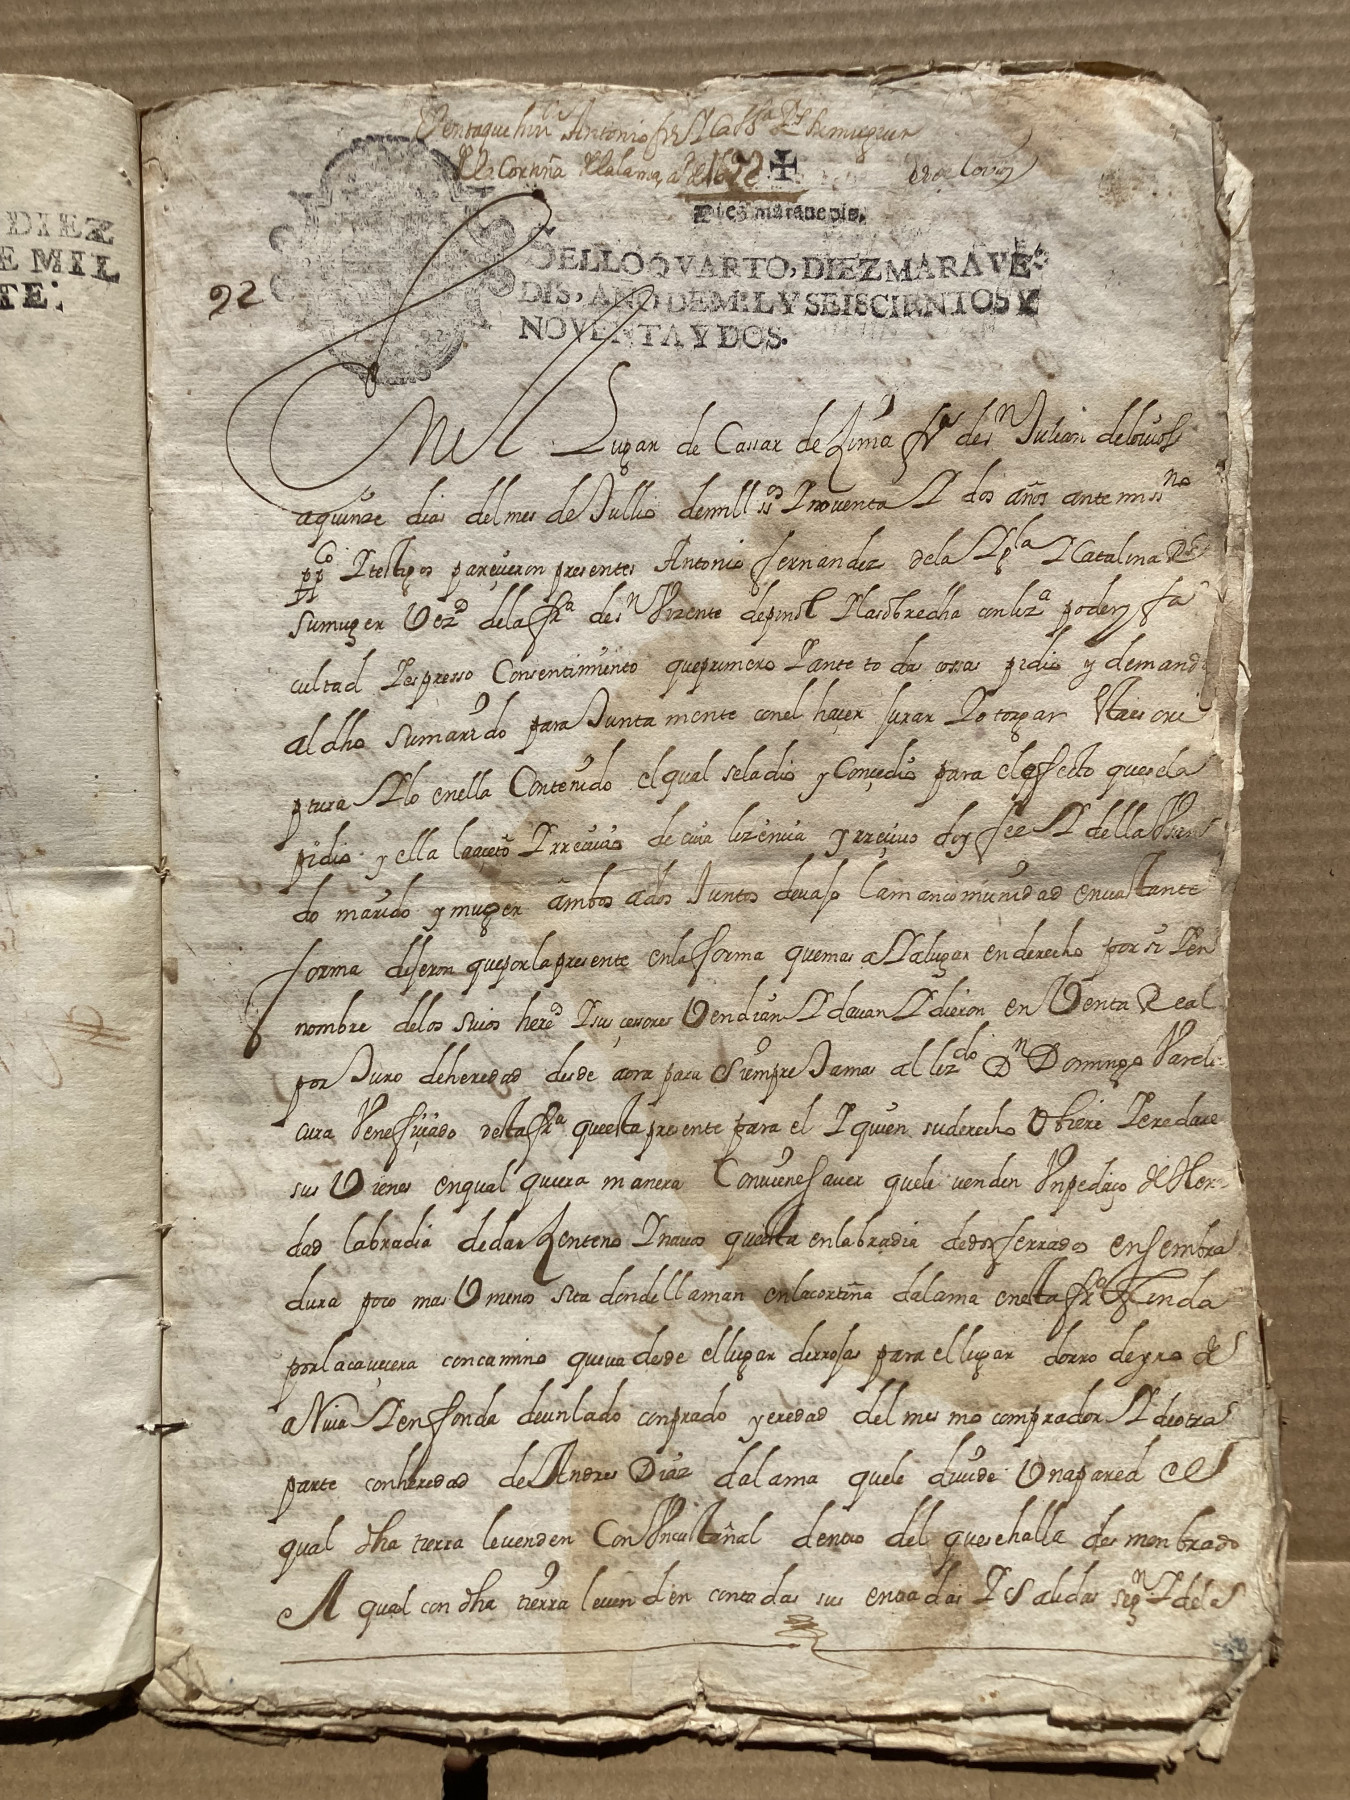 DIEZ
E MIL
TE:
Venta que hizo Antonio frz
de la Cortiña de la lama, a de 1692
Diez maravedis.
SELLO QVARTO, DIEZ MARAVE-
DIS, AÑO DE MIL Y SEISCIENTOS Y
NOVENTA Y DOS.
92
En el Lugar de Cassar de fra de sn Julian de
a quinze dias del mes de Jullio de mill ss.os I noventa I dos años ante mi ssno
ppco I testigos pareçieron presentes Antonio fernandez de la I Catalina
su muger Vezos de la fra de sn Vizente de pinol I la sobredha con liza poder y fa
cultad I espresso Consentimiento que primero I ante todas cossas pidio y demando
al dho su marido para Junta mente con el haçer Jurar I otorgar esta escri
ptura I lo en ella Contenido el qual se la dio y Conçedio para el effecto que se la
pidio y ella la açeto I rreciuio de cuia lizencia y rreçiuo doy fee I della Vsan
do marido y muger ambos a dos Juntos devajo la mancomunidad en vastante
forma dijeron que por la presente en la forma que mas aya lugar en derecho por si I en
nombre de los suios heredos I suçesores Vendian I davan I dieron en Venta Real
por Juro de heredad desde aora para Siempre Jamas al lizdo Dn Domingo Varela
cura Venefiçiado desta fra que esta presente para el I quien su derecho Obiere I eredare
sus Vienes en qual quiera manera Conviene saver que le venden Vn pedaço de Here
dad labradia de dar Zenteno I navos que esta en labradia de dos ferrados en sembra
dura poco mas O menos sita donde llaman en la cortiña da lama en esta fra Tenda
por la caveçera con camino que va desde el lugar de rrosas para el lugar dorro deyro de
a Niva I en fonda de un lado con prado y eredad del mesmo comprador I de otra
parte con heredad de Andres Diaz da lama que le divide Vna pared el
qual dha tierra le venden Con Vn dentro del que se halla desmenbrado
El qual con dha tierra le venden con todas sus entradas I Salidas segn I del